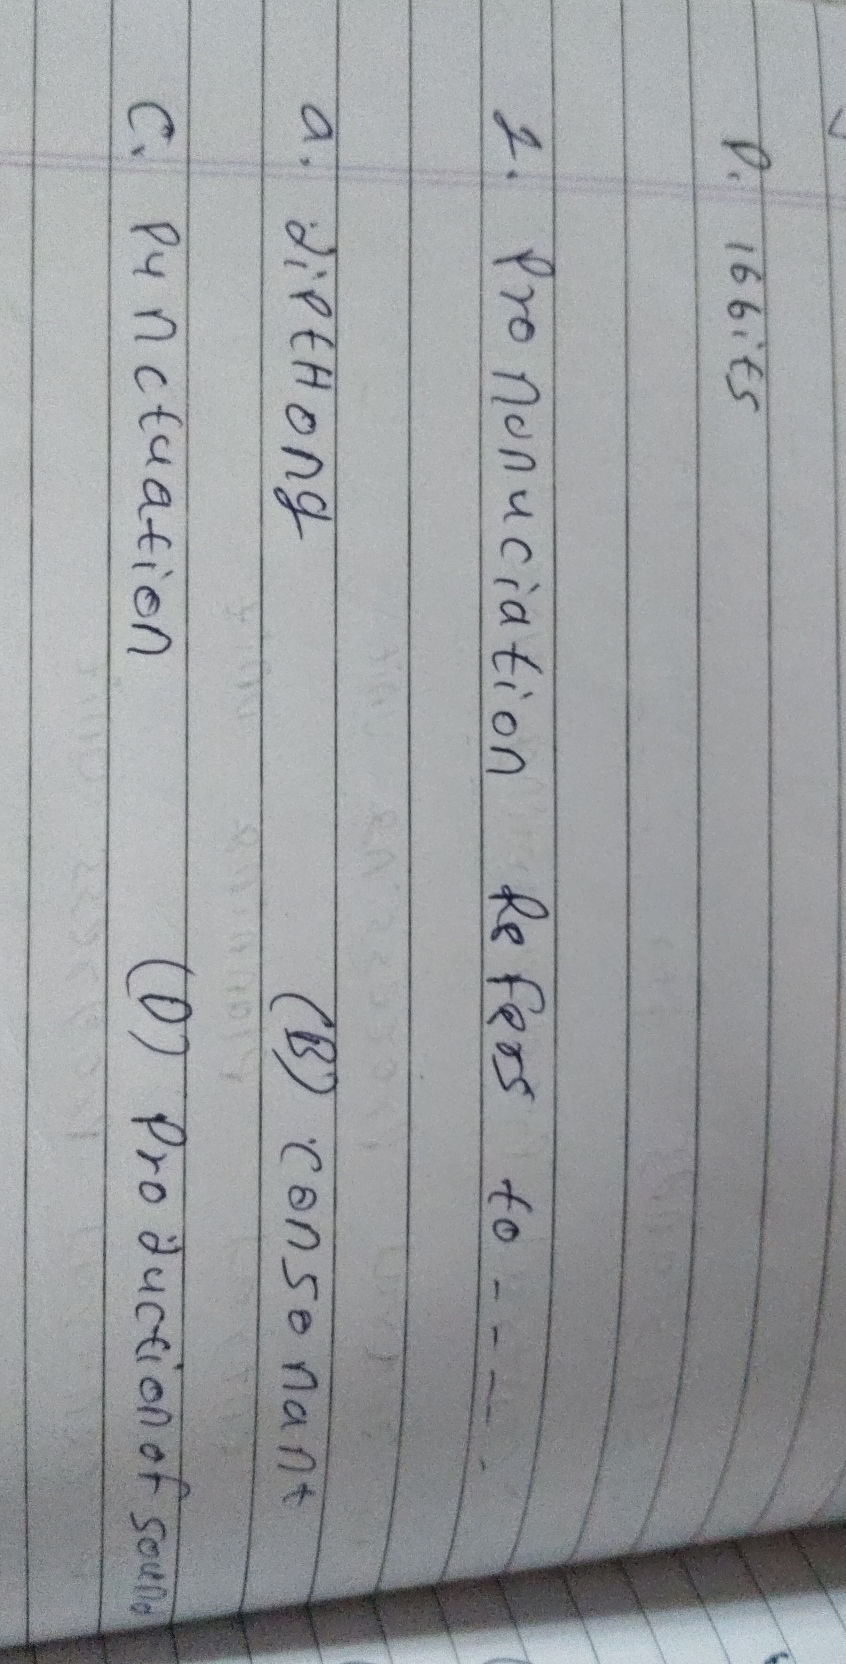 D. 16bits
1. Pronunuciation Refers to - - - -.
a. dipthong (B) consonant
C. Punctuation (D) Production of sound